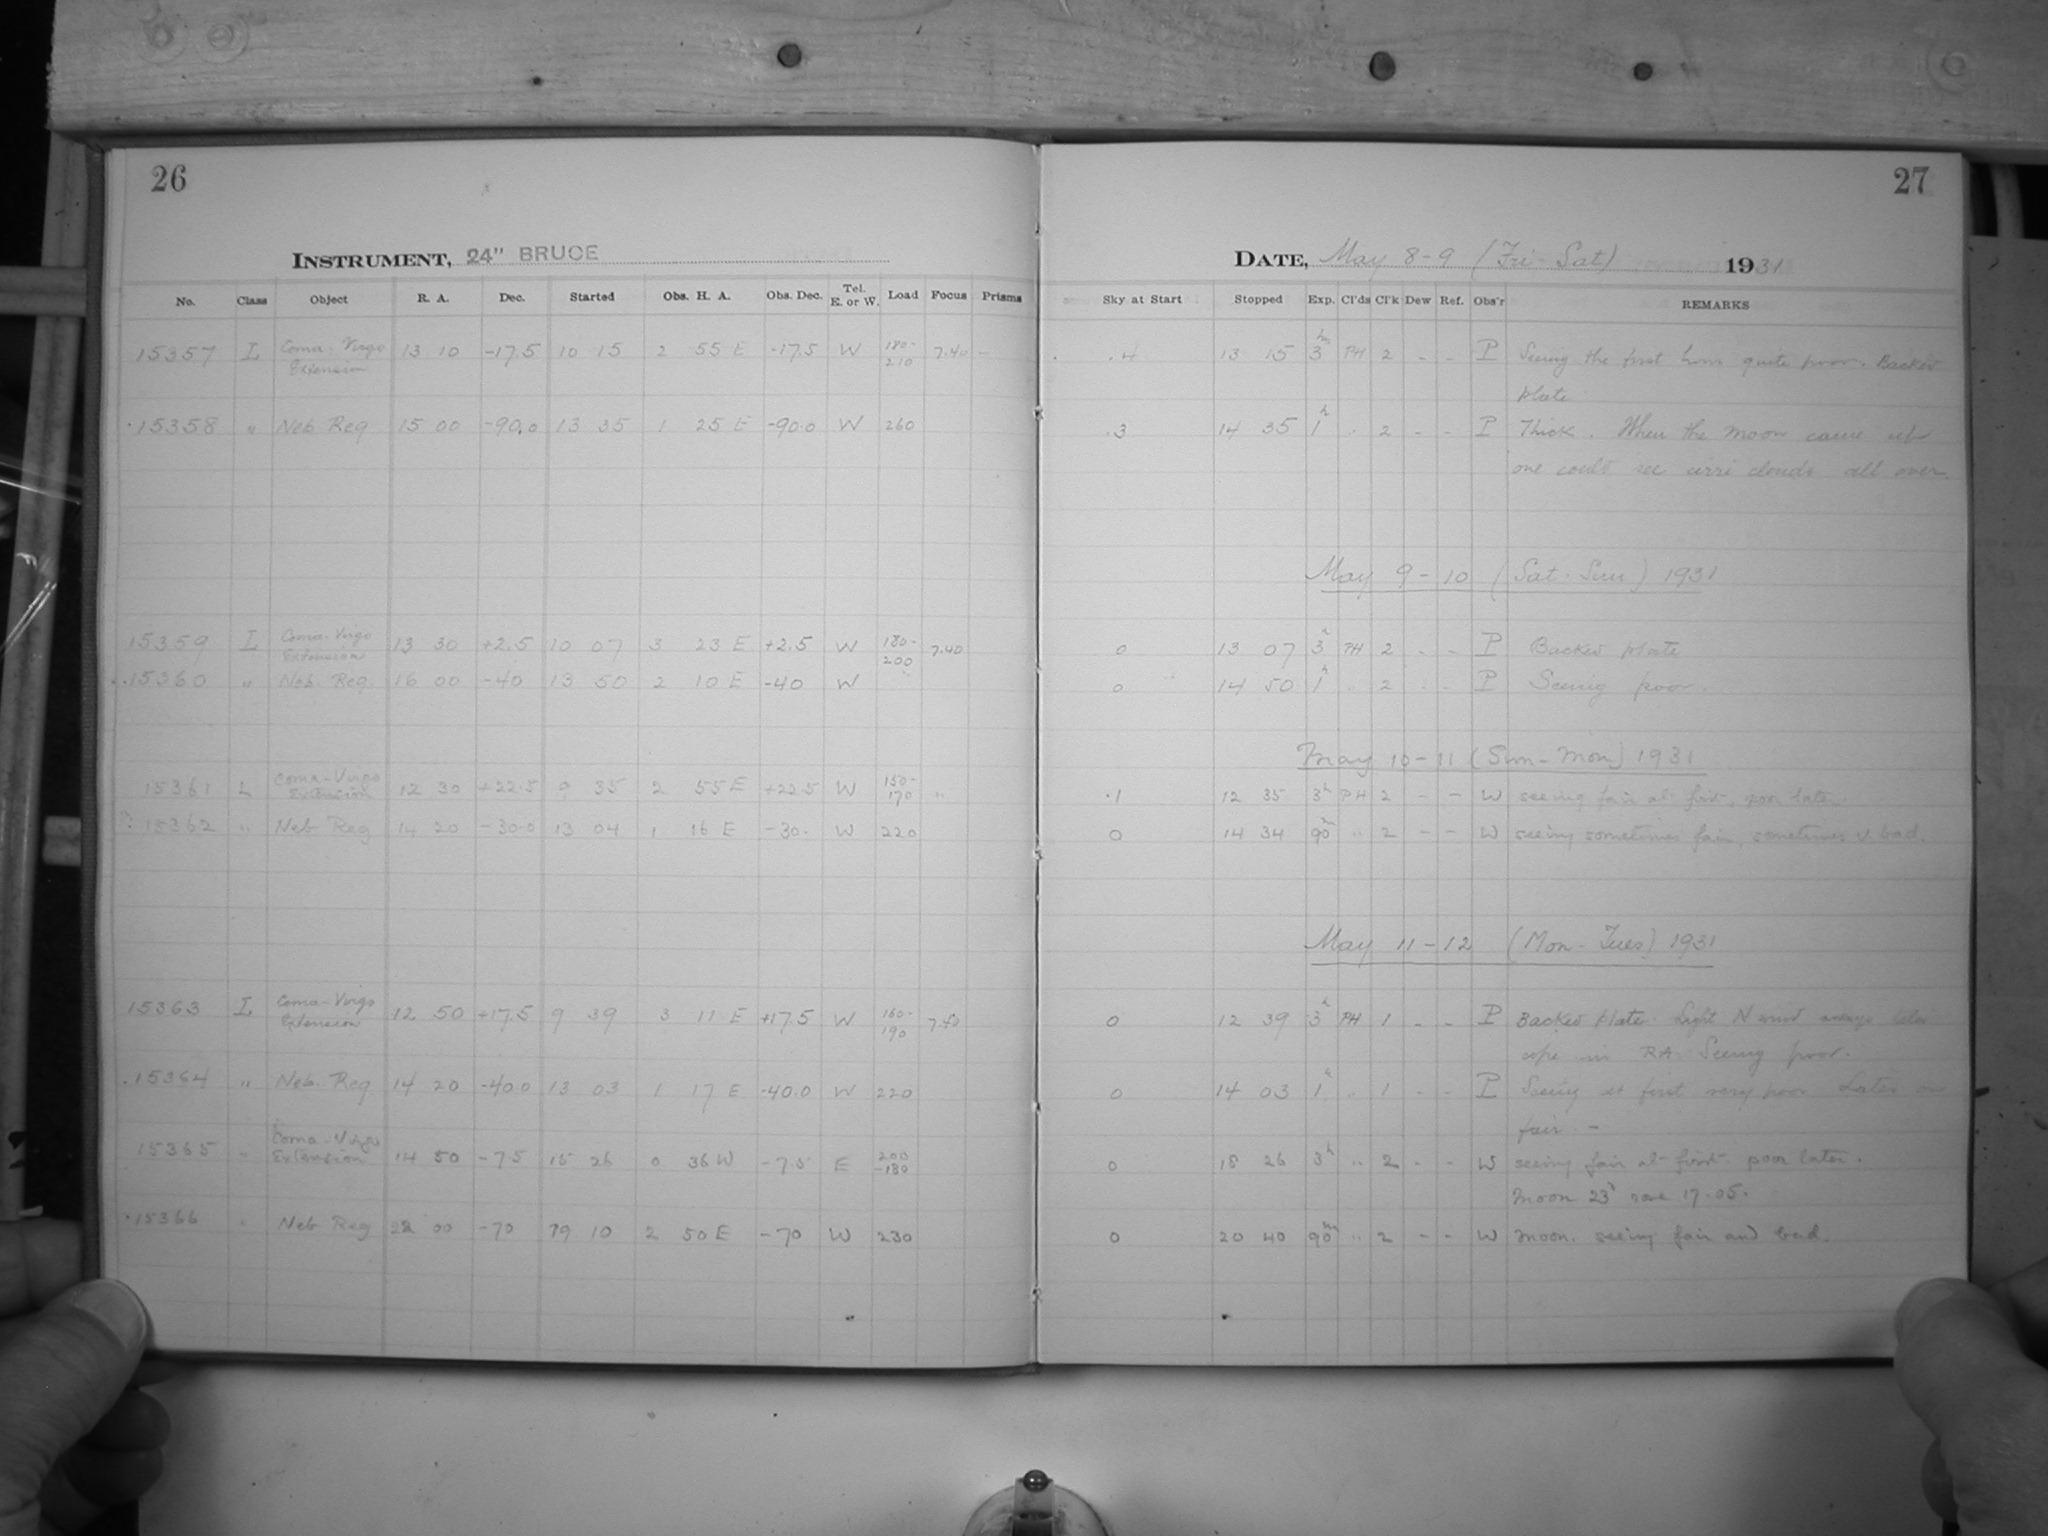 26
INSTRUMENT, 24" BRUCE
No. Class Object R. A. Dec. Started Obs. H. A. Obs. Dec. Tel. E. or W. Load Focus Prisms
15357 L Coma-Virgo Extension 13 10 -17.5 10 15 2 55 E -17.5 W 180-210 7.40 -
15358 " Neb Reg 15 00 -90.0 13 35 1 25 E -90.0 W 260
15359 L Coma-Virgo Extension 13 30 +2.5 10 07 3 23 E +2.5 W 180-200 7.40
15360 " Neb. Reg. 16 00 -40 13 50 2 10 E -40 W "
15361 L Coma-Virgo Extension 12 30 +22.5 9 35 2 55 E +22.5 W 150-170 "
15362 " Neb Reg 14 20 -30.0 13 04 1 16 E -30. W 220
15363 L Coma-Virgo Extension 12 50 +17.5 9 39 3 11 E +17.5 W 160-190 7.40
15364 " Neb. Reg 14 20 -40.0 13 03 1 17 E -40.0 W 220
15365 " Coma-Virgo Extension 14 50 -7.5 15 26 0 36 W -7.5 E 200-180
15366 " Neb Reg 22 00 -70 19 10 2 50 E -70 W 230
27
DATE, May 8-9 (Fri-Sat) 1931
Sky at Start Stopped Exp. Cl'ds Cl'k Dew Ref. Obs'r REMARKS
.4 13 15 3h PH 2 - - P Seeing the first hour quite poor. Backed
plate
.3 14 35 1h " 2 - - P Thick. When the moon came up
one could see cirri clouds all over
May 9-10 (Sat-Sun) 1931
0 13 07 3h PH 2 - - P Backed plate
0 14 50 1h " 2 - - P Seeing poor.
May 10-11 (Sun-Mon) 1931
.1 12 35 3h PH 2 - - W seeing fair at first, poor later.
0 14 34 90m " 2 - - W seeing sometimes fair, sometimes v. bad.
May 11-12 (Mon-Tues) 1931
0 12 39 3h PH 1 - - P Backed plate. Light N wind
in RA. Seeing poor.
0 14 03 1h " 1 - - P Seeing at first very poor Later on
fair. -
0 18 26 3h " 2 - - W seeing fair at first poor later.
Moon 23h rose 17.05.
0 20 40 90m " 2 - - W Moon. seeing fair and bad.